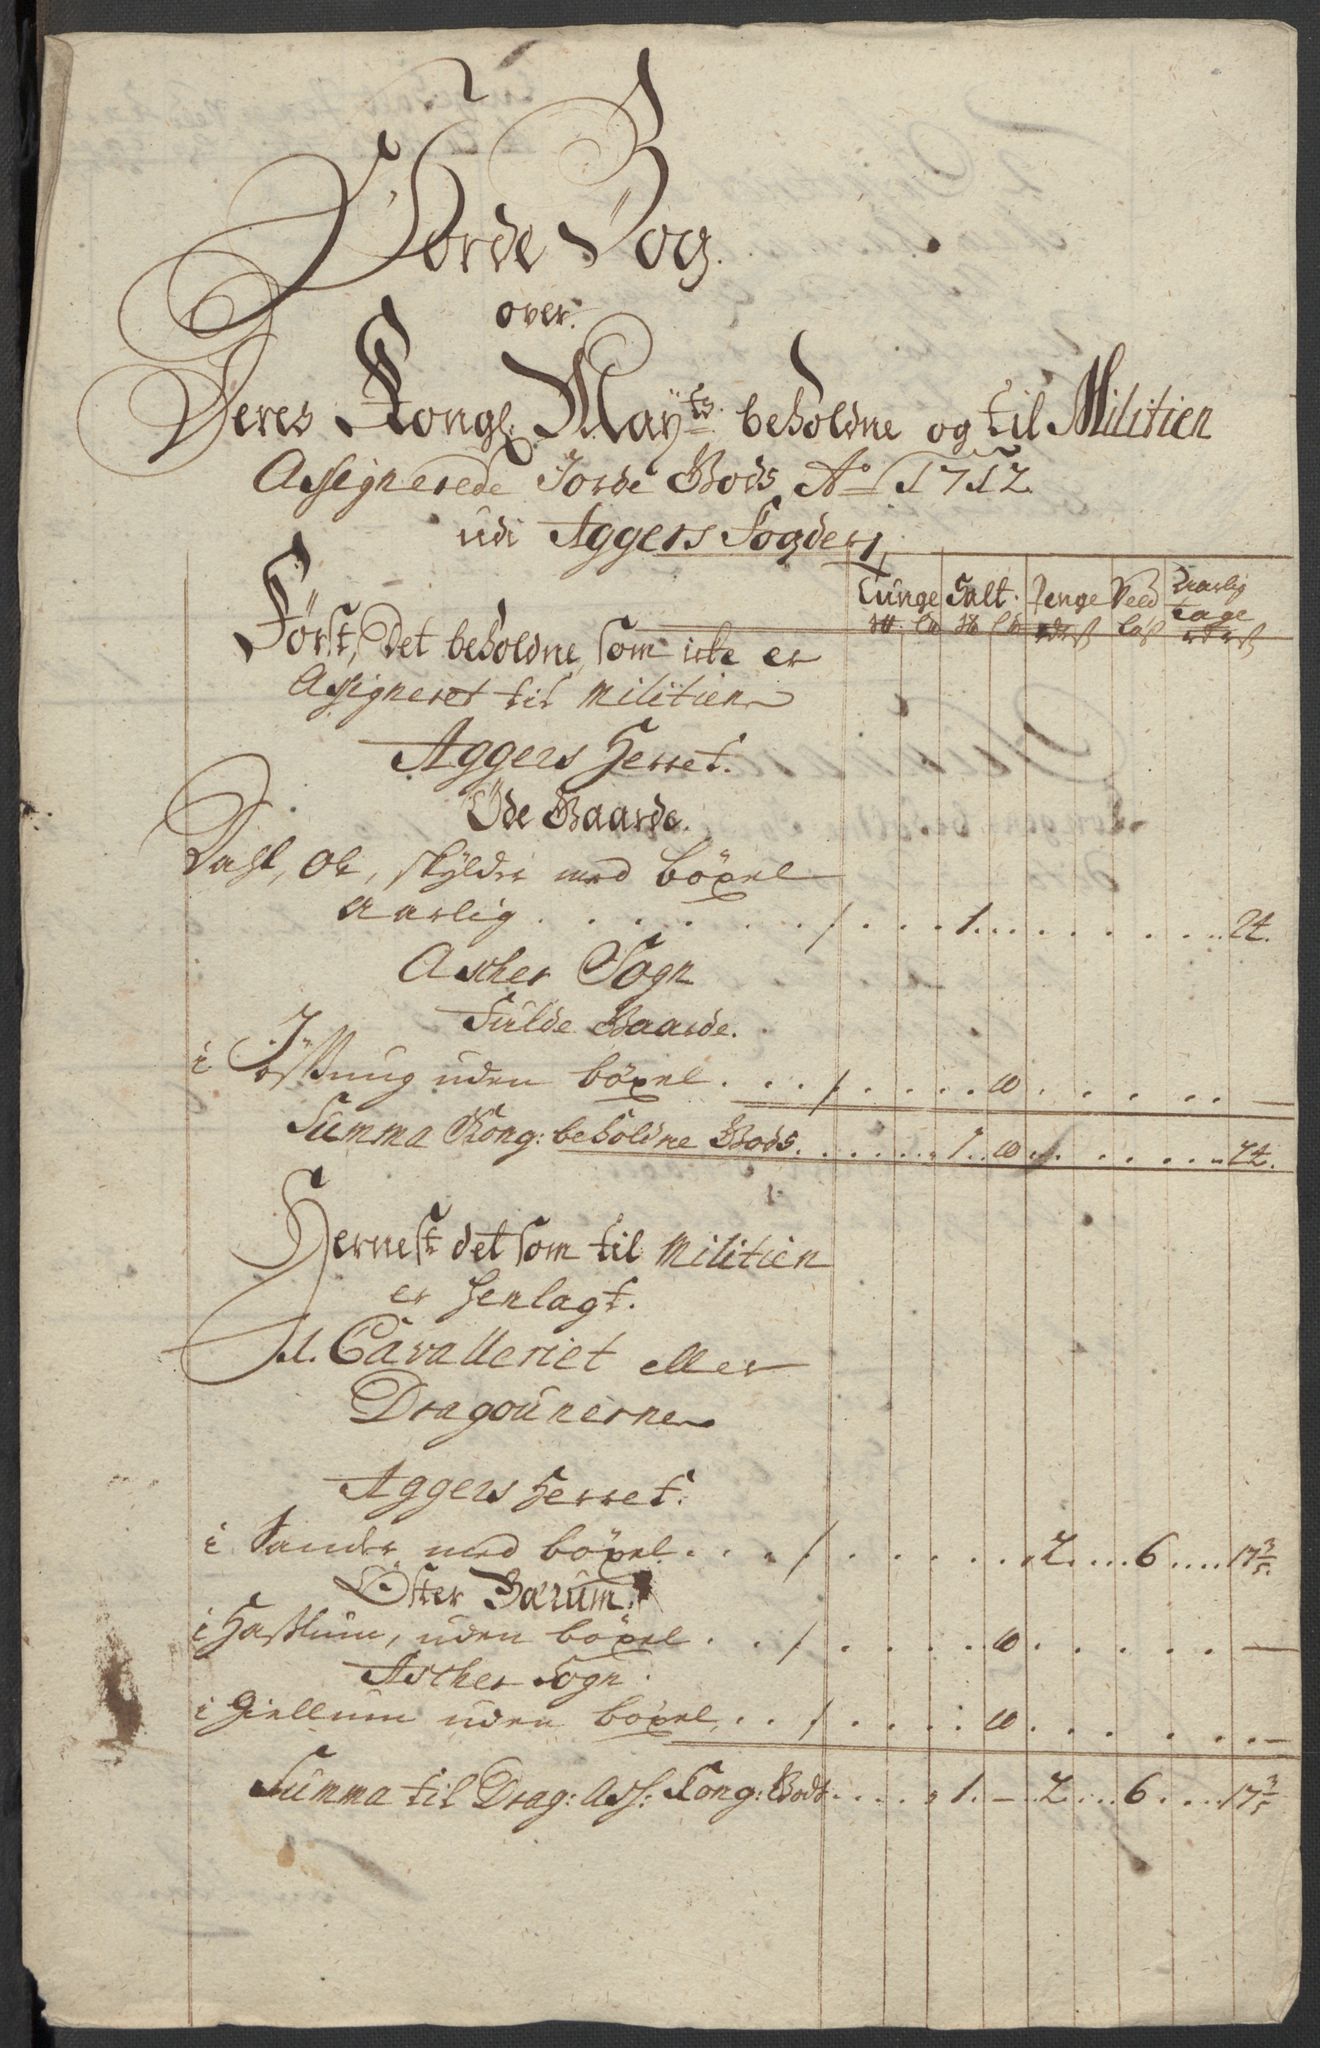 Jorde Bog.
over
Deres Kongl. Mayts. beholdne og til Militien
Assignerede Jorde Gods Ao 1712
udi Aggers Fogderj
Tunge Salt. Penge Veed Aarlig tage
Først, Det beholdne, som icke er
Assigneret til Militien
Aggers Herret.
Øde Gaarde.
Dahl, Ob, skylder med böxel
aarlig . . . . . . . / . . . 1. . . . . . . . . 24.
Ascher Sogn
Fulde Gaarde.
i Jössung uden böxel . . . / . . . . . ½ . . . . . . —
Summa Kong: beholdne Gods. . . . . . . 1 . . ½ . . . . . . 24.
Hernest det som til Militien
er henlagt.
Til Cavalleriet eller
Dragounerne
Aggers Herret.
i Sander med böxel. . . . / . . . . . . . 2. . . . 6 . . . . 17 3/5.
Öster Bærum.
i Haslum, uden böxel . . . / . . . . . . ½ . . . . . . —
Ascher Sogn.
i Giellum uden böxel, . . . / . . . . . ½ . . . . . . —
Summa til Drag: Ass: Kong: Gods. . . . . 1. — 2. . . 6. . . . 17 3/5